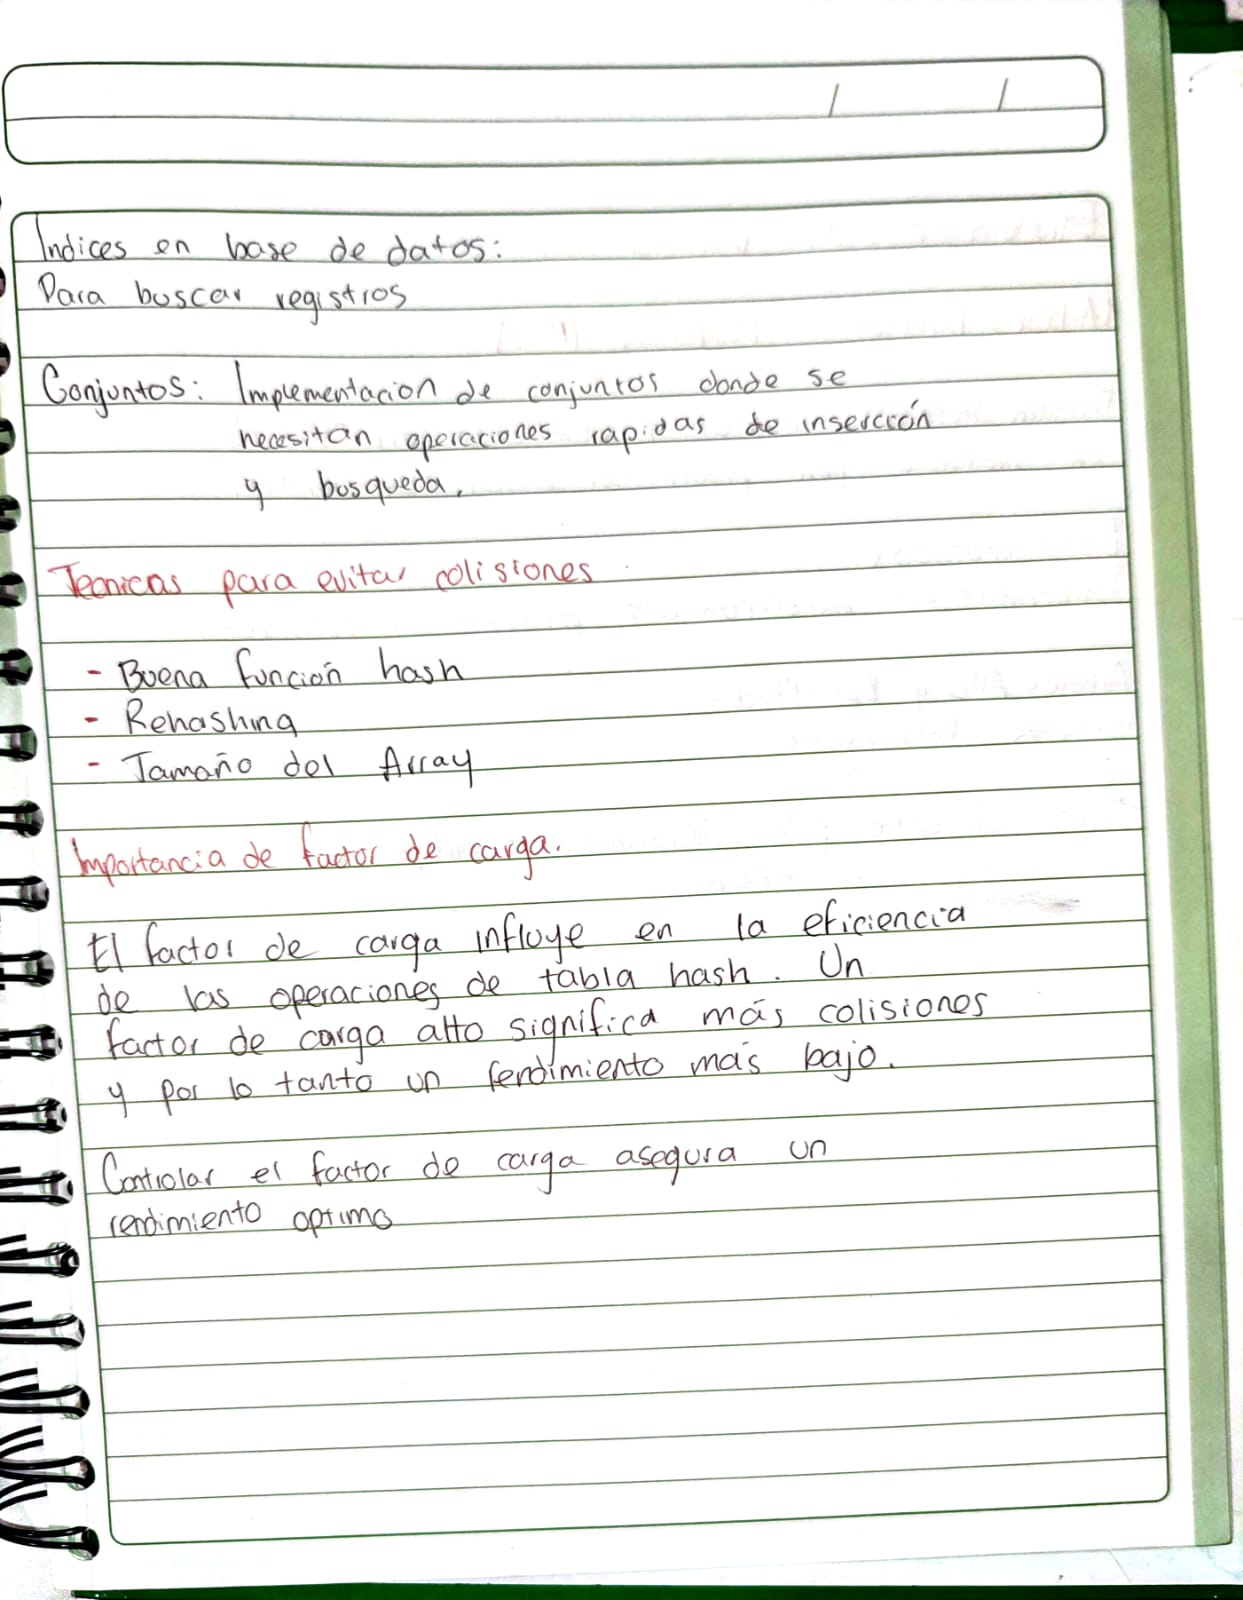 Indices en base de datos:
Para buscar registros
Conjuntos: Implementacion de conjuntos donde se
necesitan operaciones rapidas de insercción
y busqueda.
Tecnicas para evitar colisiones
- Buena función hash
- Rehashing
- Tamaño del Array
Importancia de factor de carga.
El factor de carga influye en la eficiencia
de las operaciones de tabla hash. Un
factor de carga alto significa más colisiones
y por lo tanto un rendimiento más bajo.
Controlar el factor de carga asegura un
rendimiento optimo